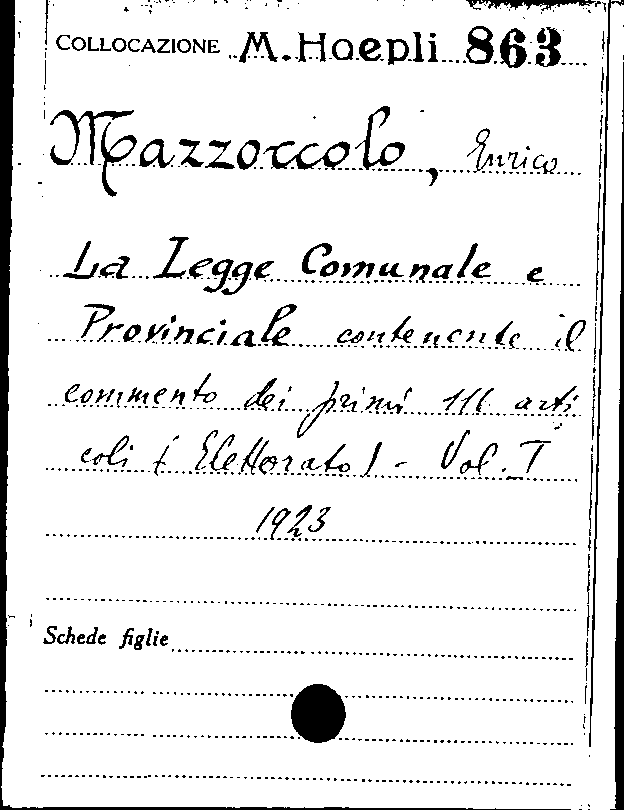 COLLOCAZIONE M. Hoepli 863
Mazzoccolo, Enrico
La Legge Comunale e
Provinciale contenente il
commento dei primi 111 arti
coli (Elettorato) - Vol. I
1923
Schede figlie